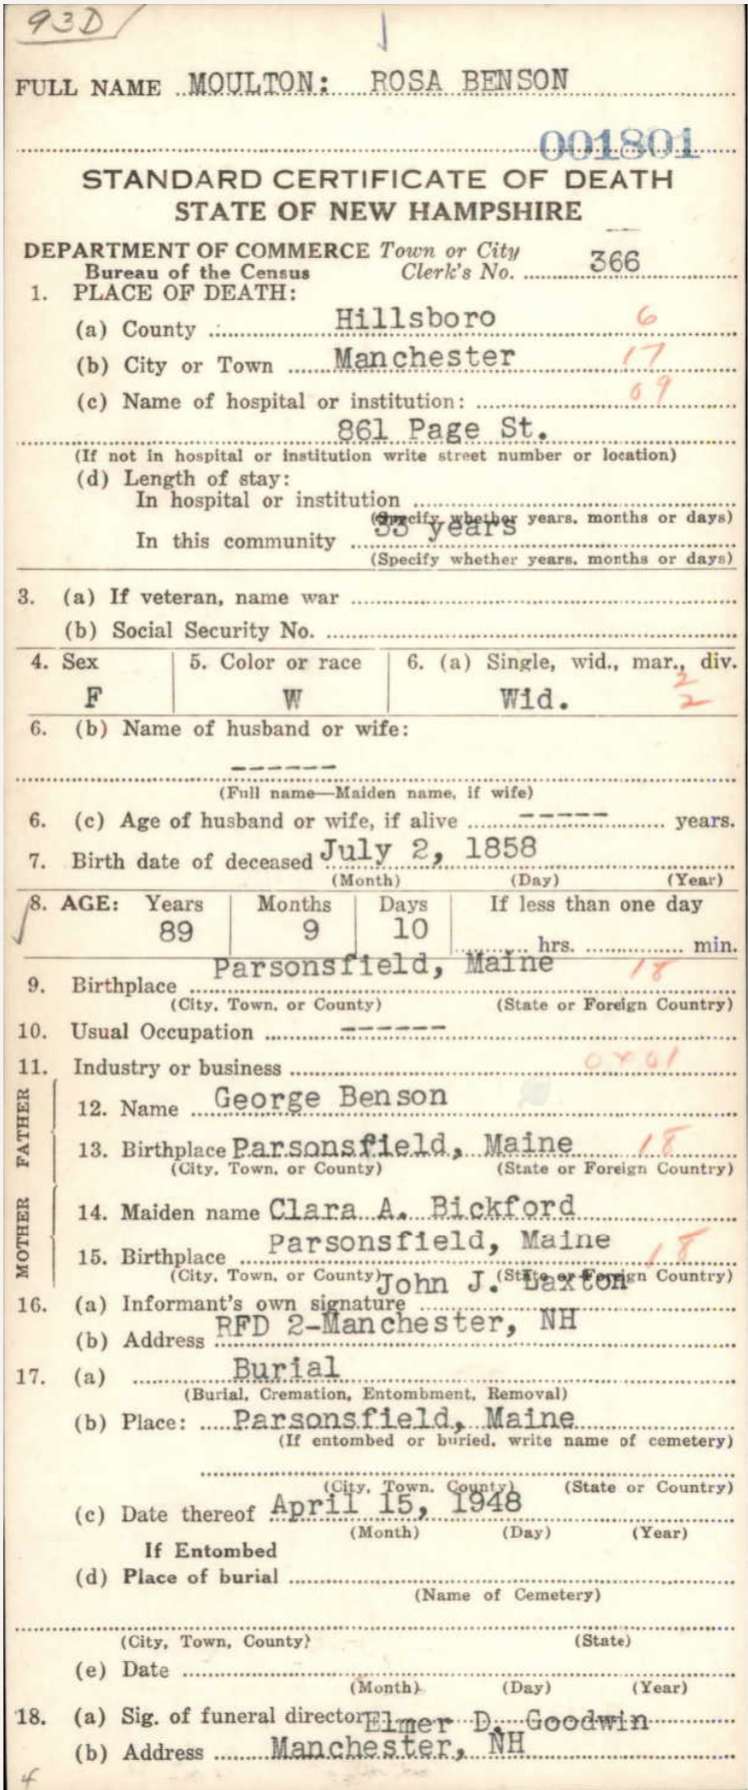 93D
FULL NAME MOULTON: ROSA BENSON
001801
STANDARD CERTIFICATE OF DEATH
STATE OF NEW HAMPSHIRE
DEPARTMENT OF COMMERCE Town or City
Bureau of the Census Clerk's No. 366
1. PLACE OF DEATH:
(a) County Hillsboro 6
(b) City or Town Manchester 17
(c) Name of hospital or institution: 09
861 Page St.
(If not in hospital or institution write street number or location)
(d) Length of stay:
In hospital or institution
(Specify whether years, months or days)
In this community 33 years
(Specify whether years, months or days)
3. (a) If veteran, name war
(b) Social Security No.
4. Sex 5. Color or race 6. (a) Single, wid., mar., div.
2
F W Wid. 2
6. (b) Name of husband or wife:
------
(Full name—Maiden name, if wife)
6. (c) Age of husband or wife, if alive ------ years.
7. Birth date of deceased July 2, 1858
(Month) (Day) (Year)
8. AGE: Years Months Days If less than one day
89 9 10 hrs. min.
9. Birthplace Parsonsfield, Maine 18
(City, Town, or County) (State or Foreign Country)
10. Usual Occupation ------
11. Industry or business
FATHER
12. Name George Benson
13. Birthplace Parsonsfield, Maine 18
(City, Town, or County) (State or Foreign Country)
MOTHER
14. Maiden name Clara A. Bickford
15. Birthplace Parsonsfield, Maine 18
(City, Town, or County) (State or Foreign Country)
16. (a) Informant's own signature John J.
(b) Address RFD 2-Manchester, NH
17. (a) Burial
(Burial, Cremation, Entombment, Removal)
(b) Place: Parsonsfield, Maine
(If entombed or buried, write name of cemetery)
(City, Town, County) (State or Country)
(c) Date thereof April 15, 1948
(Month) (Day) (Year)
If Entombed
(d) Place of burial
(Name of Cemetery)
(City, Town, County) (State)
(e) Date
(Month) (Day) (Year)
18. (a) Sig. of funeral director Elmer D. Goodwin
(b) Address Manchester, NH